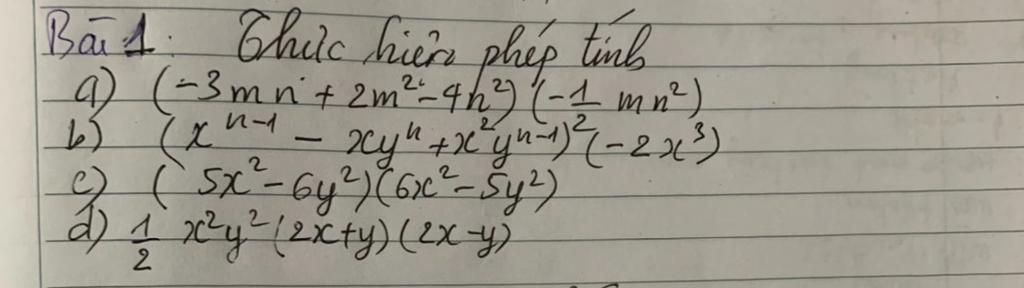 Bài 1: Thực hiện phép tính
a) (-3mn + 2m² - 4n²) (-1/2 mn²)
b) (xⁿ⁻¹ - xyⁿ + x²yⁿ⁻¹) (-2x³)
c) (5x² - 6y²)(6x² - 5y²)
d) 1/2 x²y² (2x+y) (2x-y)